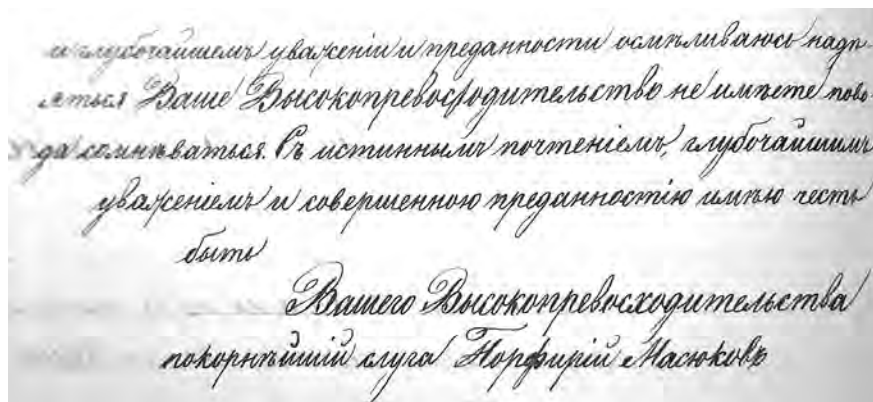 и глубочайшемъ уваженіи и преданности осмѣливаюсь надѣ-
яться Ваше Высокопревосходительство не имѣете пово-
да сомнѣваться. Съ истиннымъ почтеніемъ, глубочайшимъ
уваженіемъ и совершенною преданностію имѣю честь
быть
Вашего Высокопревосходительства
покорнѣйшій слуга Порфирій Масюковъ